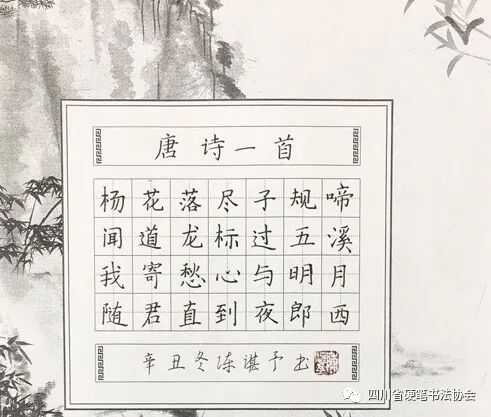 唐诗一首
杨花落尽子规啼
闻道龙标过五溪
我寄愁心与明月
随君直到夜郎西
辛丑冬陈谌予书
四川省硬笔书法协会